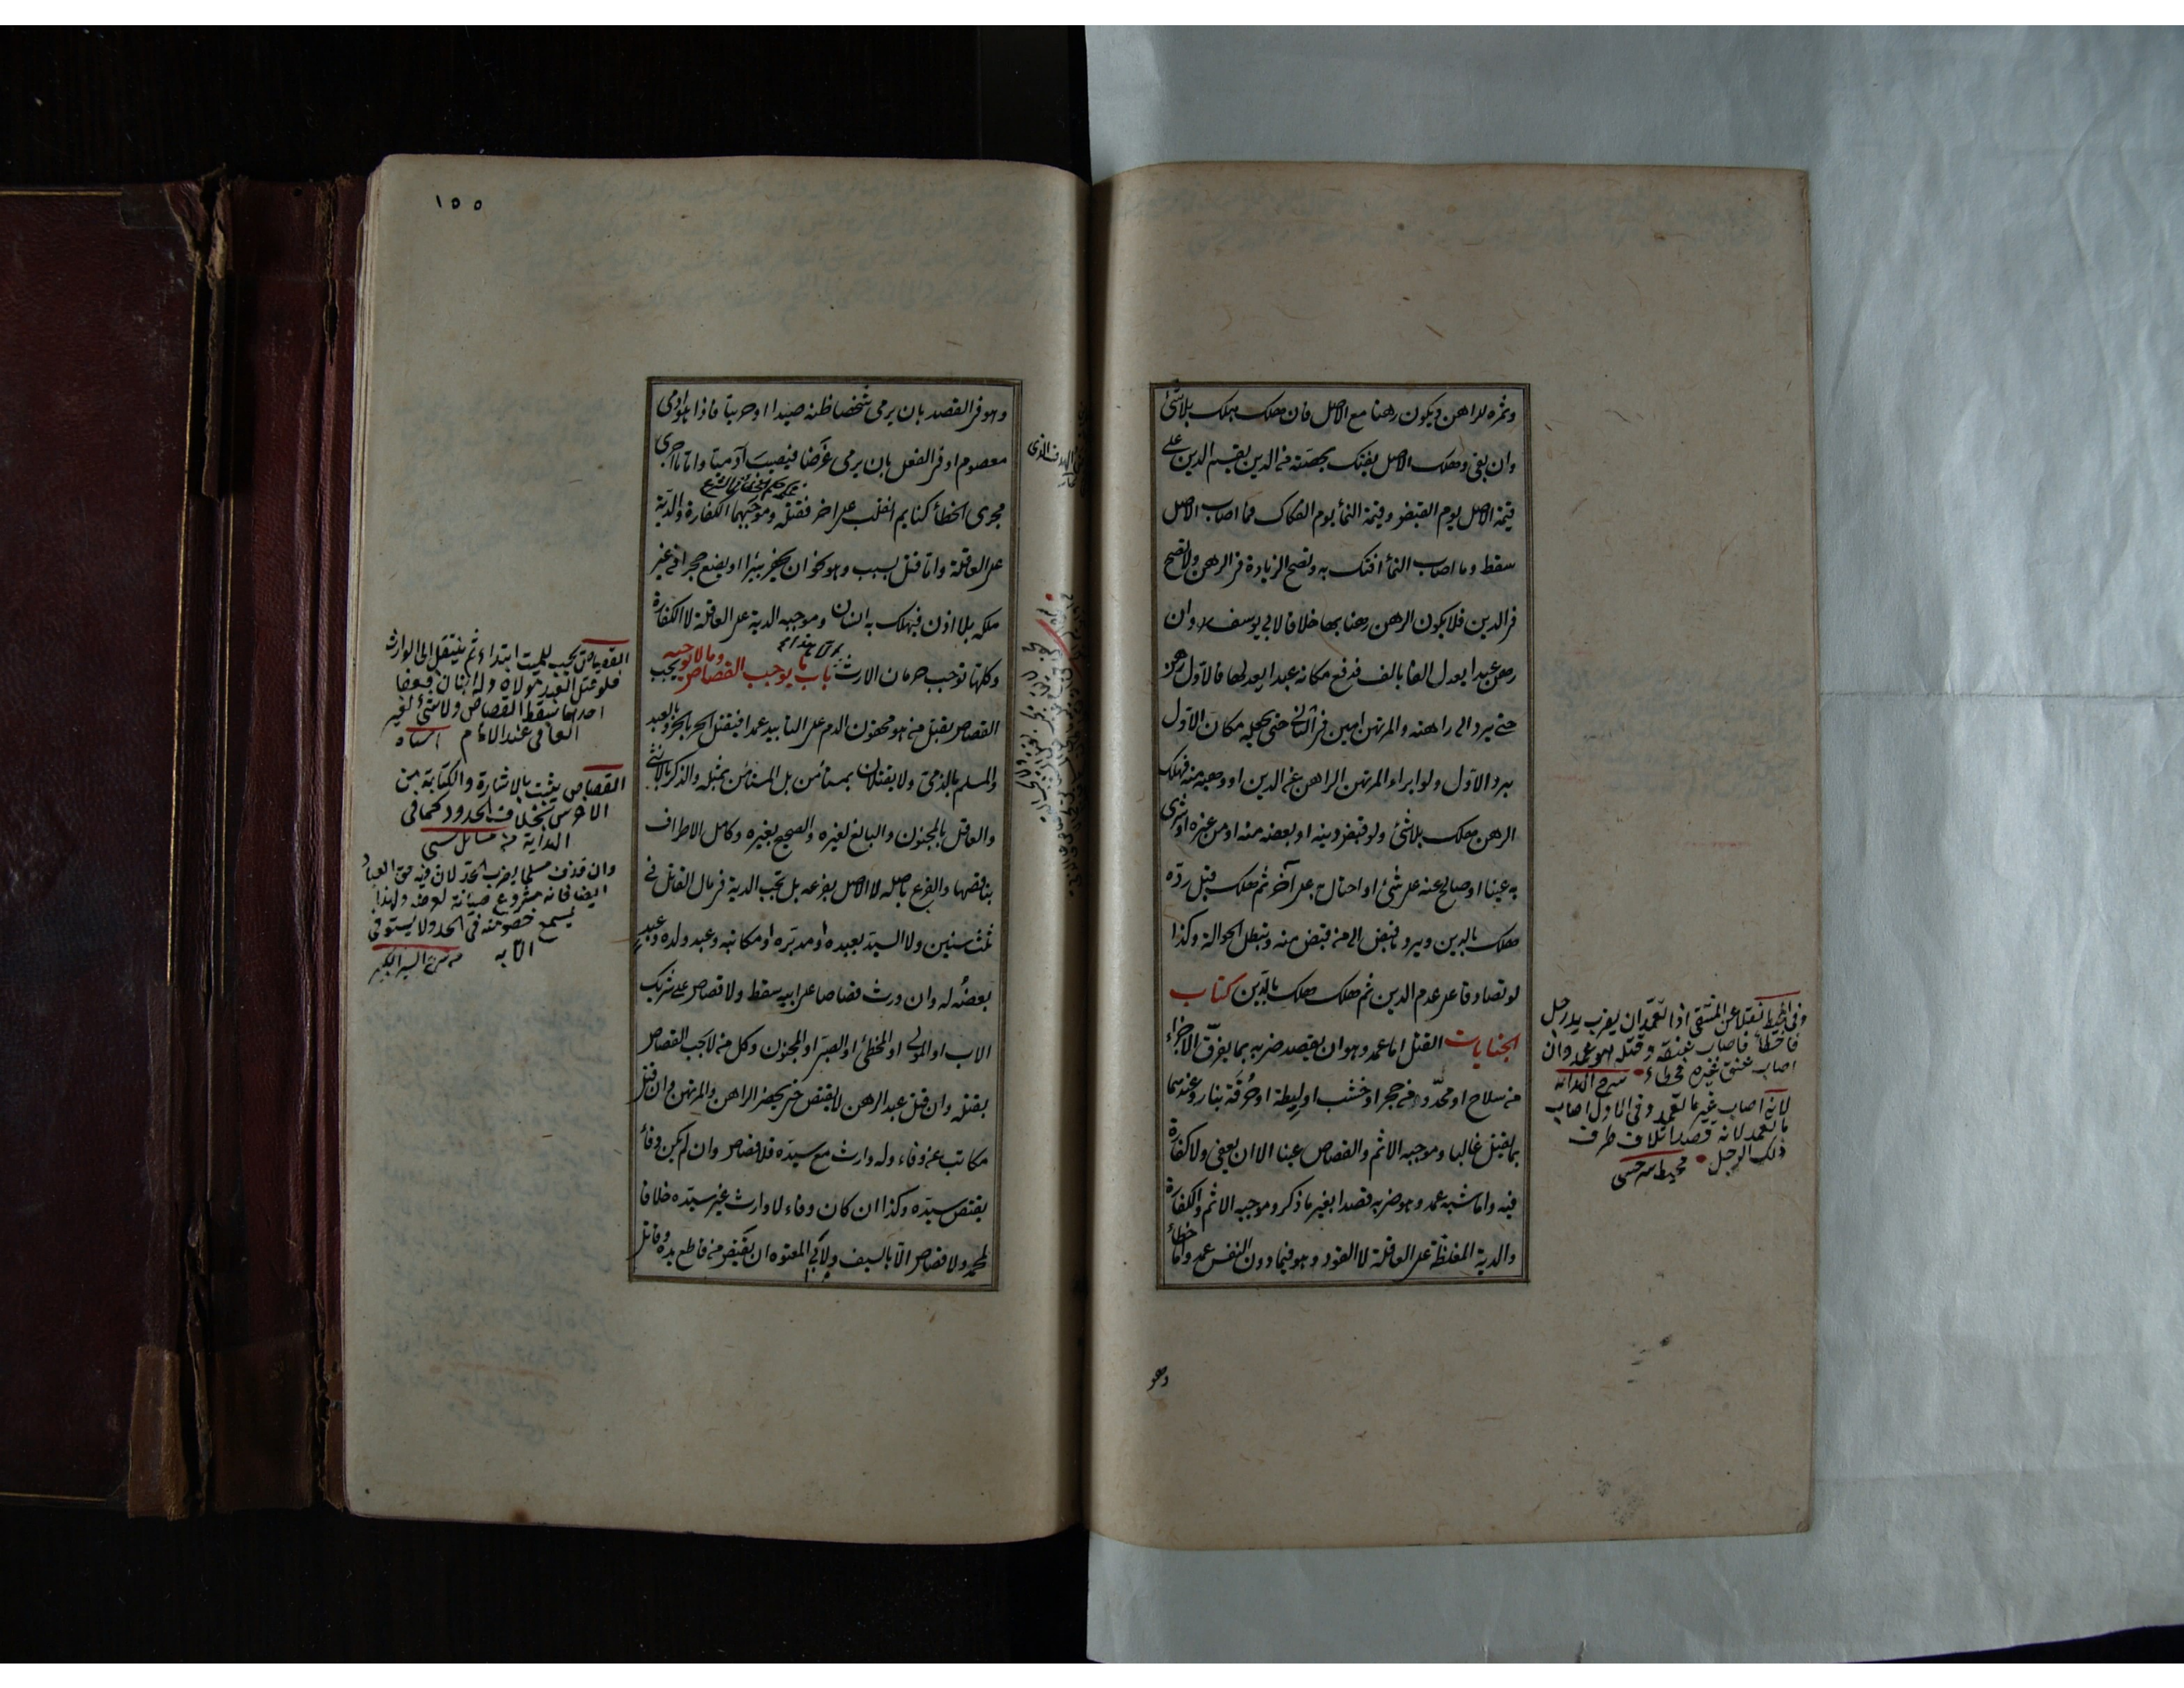 وثمره للراهن ويكون رهنا مع الاصل فان هلك يهلك بلا شئ
وان بقى وهلك الاصل يفتك بحصته من الدين يقسم الدين على
قيمة الاصل يوم القبض وقيمة النمأ يوم الفكاك فما اصاب الاصل
سقط وما اصاب النمأ افتك به وتصح الزيادة فى الرهن ولا تصح
فى الدين فلا يكون الرهن رهنا بها خلافا لابى يوسف وان
رهن عبدا يعدل الفا بالف فدفع مكانه عبدا يعدلها فالاول رهن
حتى يرد الى راهنه والمرتهن امين فى الثانى حتى يجعله مكان الاول
برد الاول ولو ابراء المرتهن الراهن عن الدين او وهبه منه فهلك
الرهن هلك بلا شئ ولو قبض دينه او بعضه منه او من غيره او شرى
به عينا او صالح عنه على شئ او احتال به على آخر ثم هلك قبل رده
هلك بالدين ويرد ما قبض الى من قبض منه وتبطل الحوالة وكذا
لو تصادقا على عدم الدين ثم هلك هلك بالدين كتاب
الجنايات القتل اما عمد وهو ان يقصد ضربه بما يفرق الاجزاء
من سلاح او محدد من حجر او خشب او ليطة او حرقة بنار وعندهما
بما يقتل غالبا وموجبه الاثم والقصاص عينا الا ان يعفى ولا كفارة
فيه واما شبه عمد وهو ضربه قصدا بغير ما ذكر وموجبه الاثم والكفارة
والدية المغلظة على العاقلة لا القود وهو فيما دون النفس عمد واما خطأ
وفى المحيط نقلا عن المنتقى اذا تعمد ان يضرب يد رجل
فاخطأ فاصاب عنقه وقتله فهو عمد وان
اصاب عنق غيره فخطاء شرح الهدايه
لانه اصاب غير ما تعمد وفى الاول اصاب
ما تعمد لانه قصد اتلاف طرف
ذلك الرجل محيط سرخسى
وهو
١٥٥
وهو فى القصد بان يرمى شخصا ظنه صيدا او حربيا فاذا هو ادمى
معصوم او فى الفعل بان يرمى غرضا فيصيب آدميا واما ما اجرى
مجرى الخطأ كنايم انقلب على اخر فقتله وموجبهما الكفارة والدية
على العاقلة واما قتل بسبب وهو نحو ان يحفر بيرا او يضع حجرا فى غير
ملكه بلا اذن فيهلك به انسان وموجبه الدية على العاقلة لا الكفارة
وكلها توجب حرمان الارث باب ما يوجب القصاص وما لا يوجبه يجب
القصاص بقتل من هو محقون الدم على التابيد عمدا فيقتل الحر بالحر وبالعبد
والمسلم بالذمى ولا يقتلان بمستأمن بل المستأمن بمثله والذكر بالانثى
والعاقل بالمجنون والبالغ لغيره والصحيح بغيره وكامل الاطراف
بناقصها والفرع باصله لا الاصل بفرعه بل تجب الدية فى مال القاتل فى
ثلث سنين ولا السيد بعبده او مدبره او مكاتبه وعبد ولده وعبد
بعضه له وان ورث قصاصا على ابيه سقط ولا قصاص على شريك
الاب او المولى او المخطئ او الصبى او المجنون وكل من لا يجب القصاص
بقتله وان قتل عبد الرهن لا يقتص حتى يحضر الراهن والمرتهن وان قتل
مكاتب عن وفاء وله وارث مع سيده فلا قصاص وان لم يكن وفأ
يقتص سيده وكذا ان كان وفاء لا وارث غير سيده خلافا
لمحمد ولا قصاص الا بالسيف ولابى المعتوه ان يقتص من قاطع يده وقاتل
القصاص يجب للميت ابتداء ثم ينتقل الى الوارث
فلو قتل العبد مولاه وله ابنان فعفا
احدهما سقط القصاص ولا شئ لغير
العافى عند الامام اشباه
القصاص يثبت بالاشارة والكتابة من
الاخرس بخلاف الحدود كما فى
الهداية من مسائل شتى
وان قذف مسلما يضرب الحد لان فيه حق العباد
ايضا فانه مشروع صيانة لعرضه ولهذا
يسمع خصومته فى الحد ولا يستوفى
الا به من شرح السير الكبير